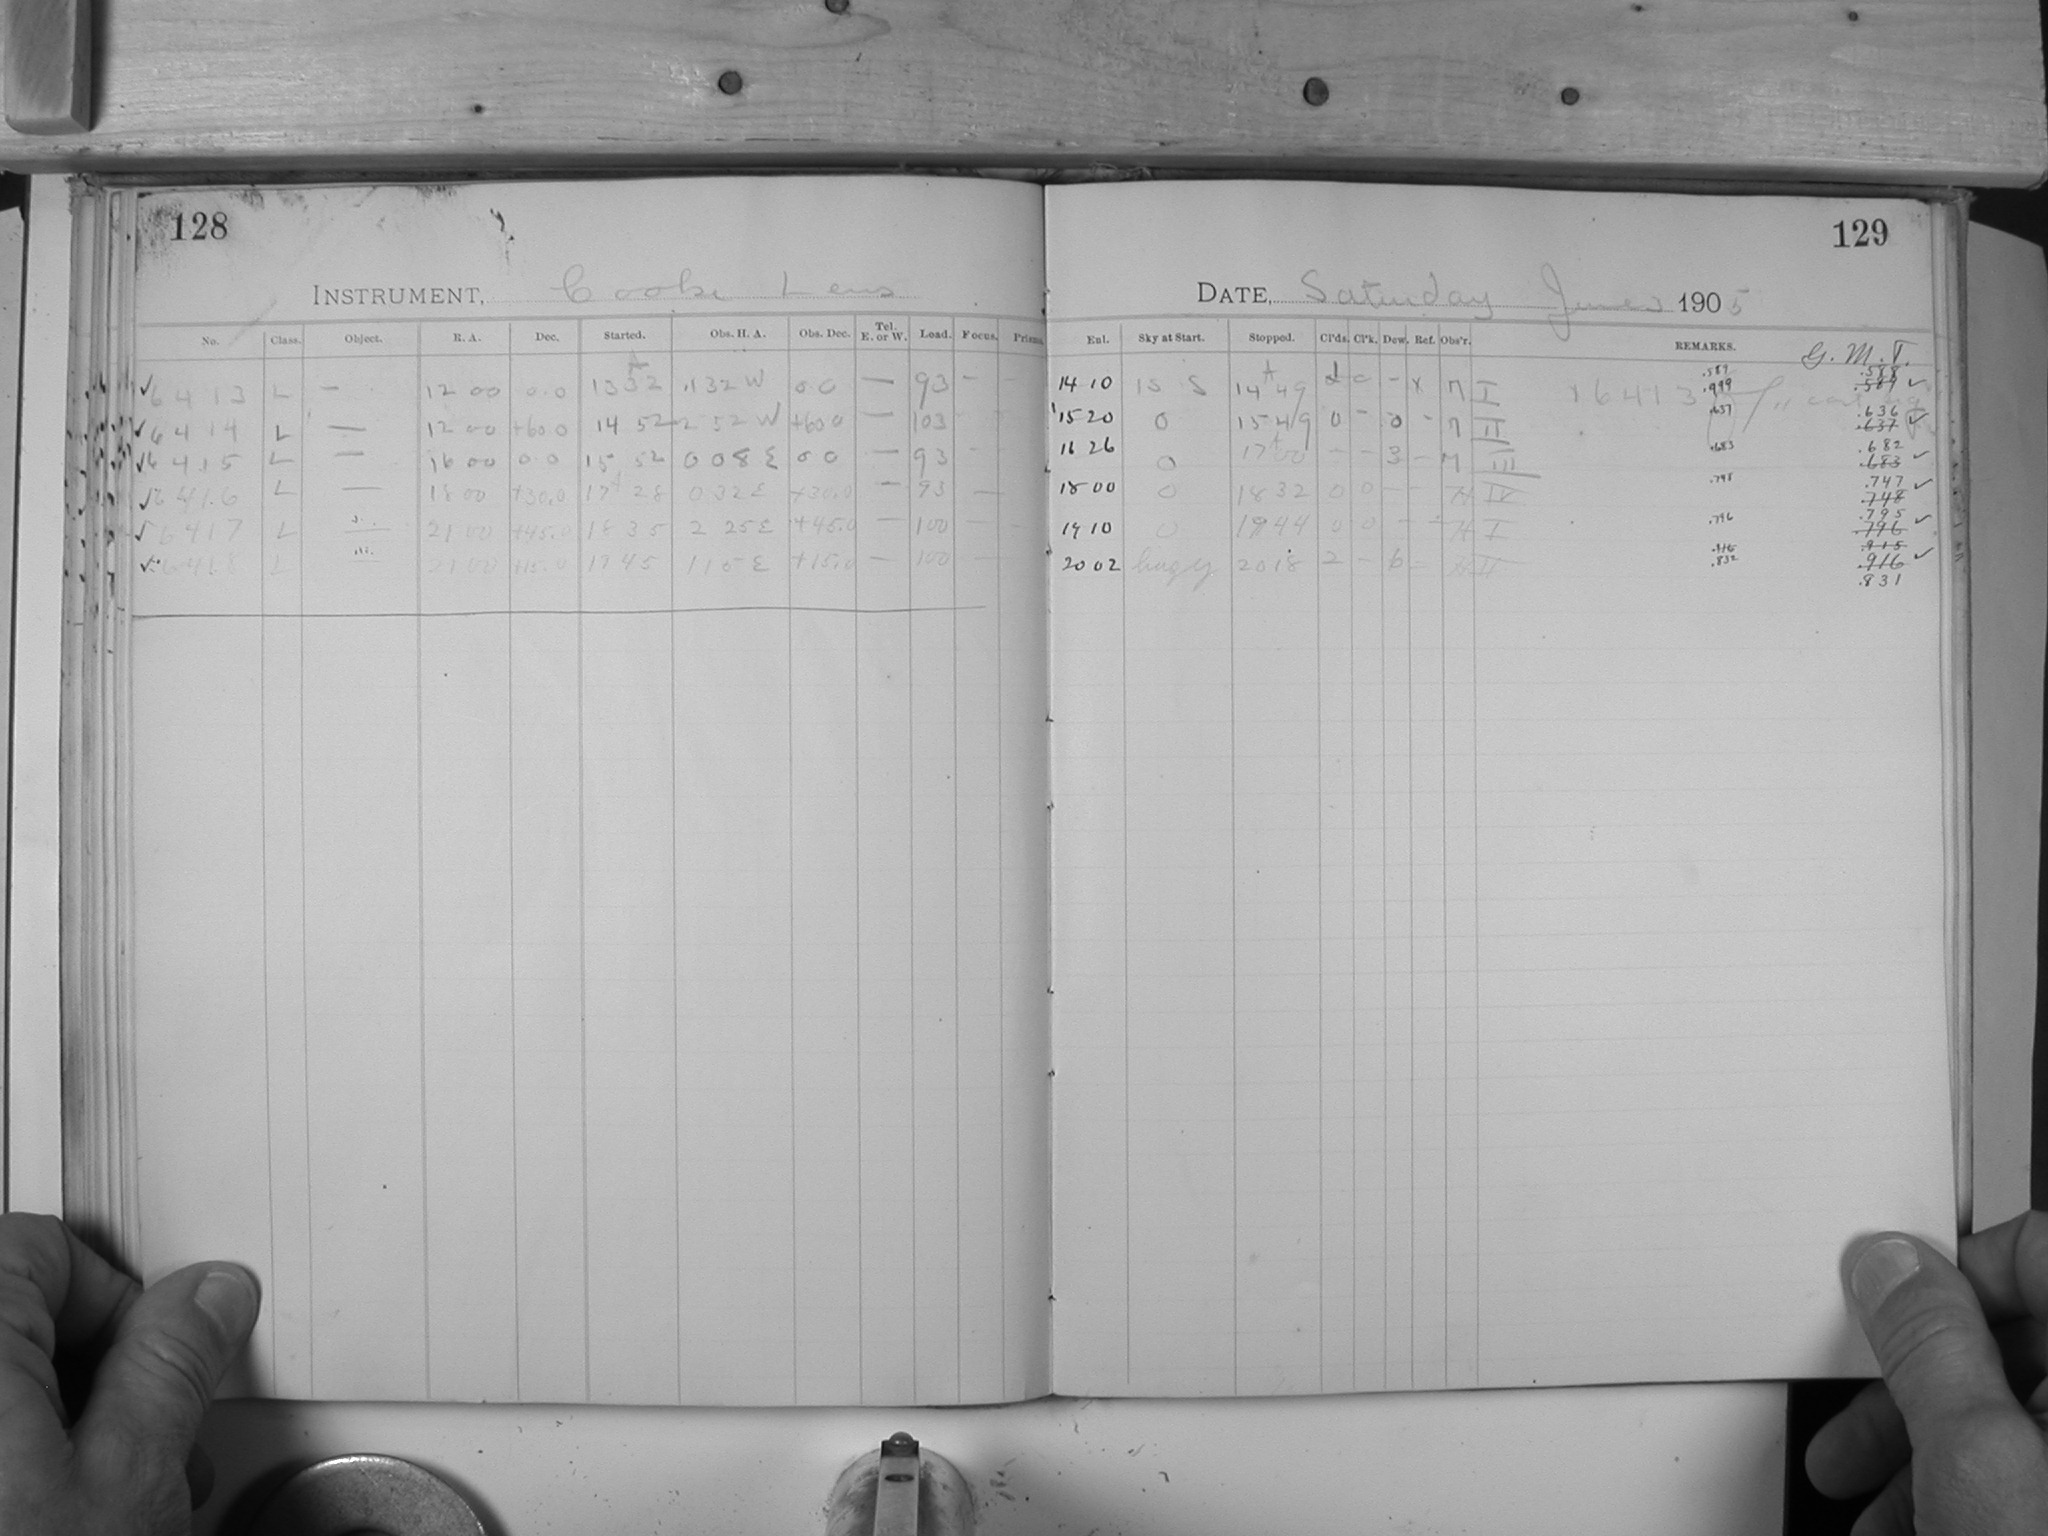 128
INSTRUMENT, Cooke Lens
No. Class. Object. R. A. Dec. Started. Obs. H. A. Obs. Dec. Tel. E. or W. Load. Focus. Prisms.
✓6413 L — 12 00 0.0 13 32 1 32 W 0 0 — 93 - -
✓6414 L — 12 00 +60.0 14 52 2 52 W +60 0 — 103 - -
✓6415 L — 16 00 0.0 15 52 0 08 E 0 0 — 93 -
✓6416 L — 18 00 +30.0 17 28 0 32 E +30.0 — 93 —
✓6417 L — 21 00 +45.0 18 35 2 25 E +45.0 — 100 — -
✓6418 L — 21 00 +15.0 19 45 1 15 E +15.0 — 100 —
129
DATE, Saturday June 3 1905
Enl. Sky at Start. Stopped. Cl'ds. Cl'k. Dew. Ref. Obs'r. REMARKS. G. M. T.
14 10 15 S 14 49 - x M I 6413 .589 .999 .588 .589 ✓
15 20 0 15 49 0 - 0 - M II .637 .636 .637 ✓
16 26 0 17 00 - - 3 - M III .683 .682 .683 ✓
18 00 0 18 32 0 0 - - H IV .748 .747 .748 ✓
19 10 0 19 44 0 0 - - H I .796 .795 .796 ✓
20 02 hazy 20 18 2 - 6 - H II .916 .832 .915 .916 ✓
.831